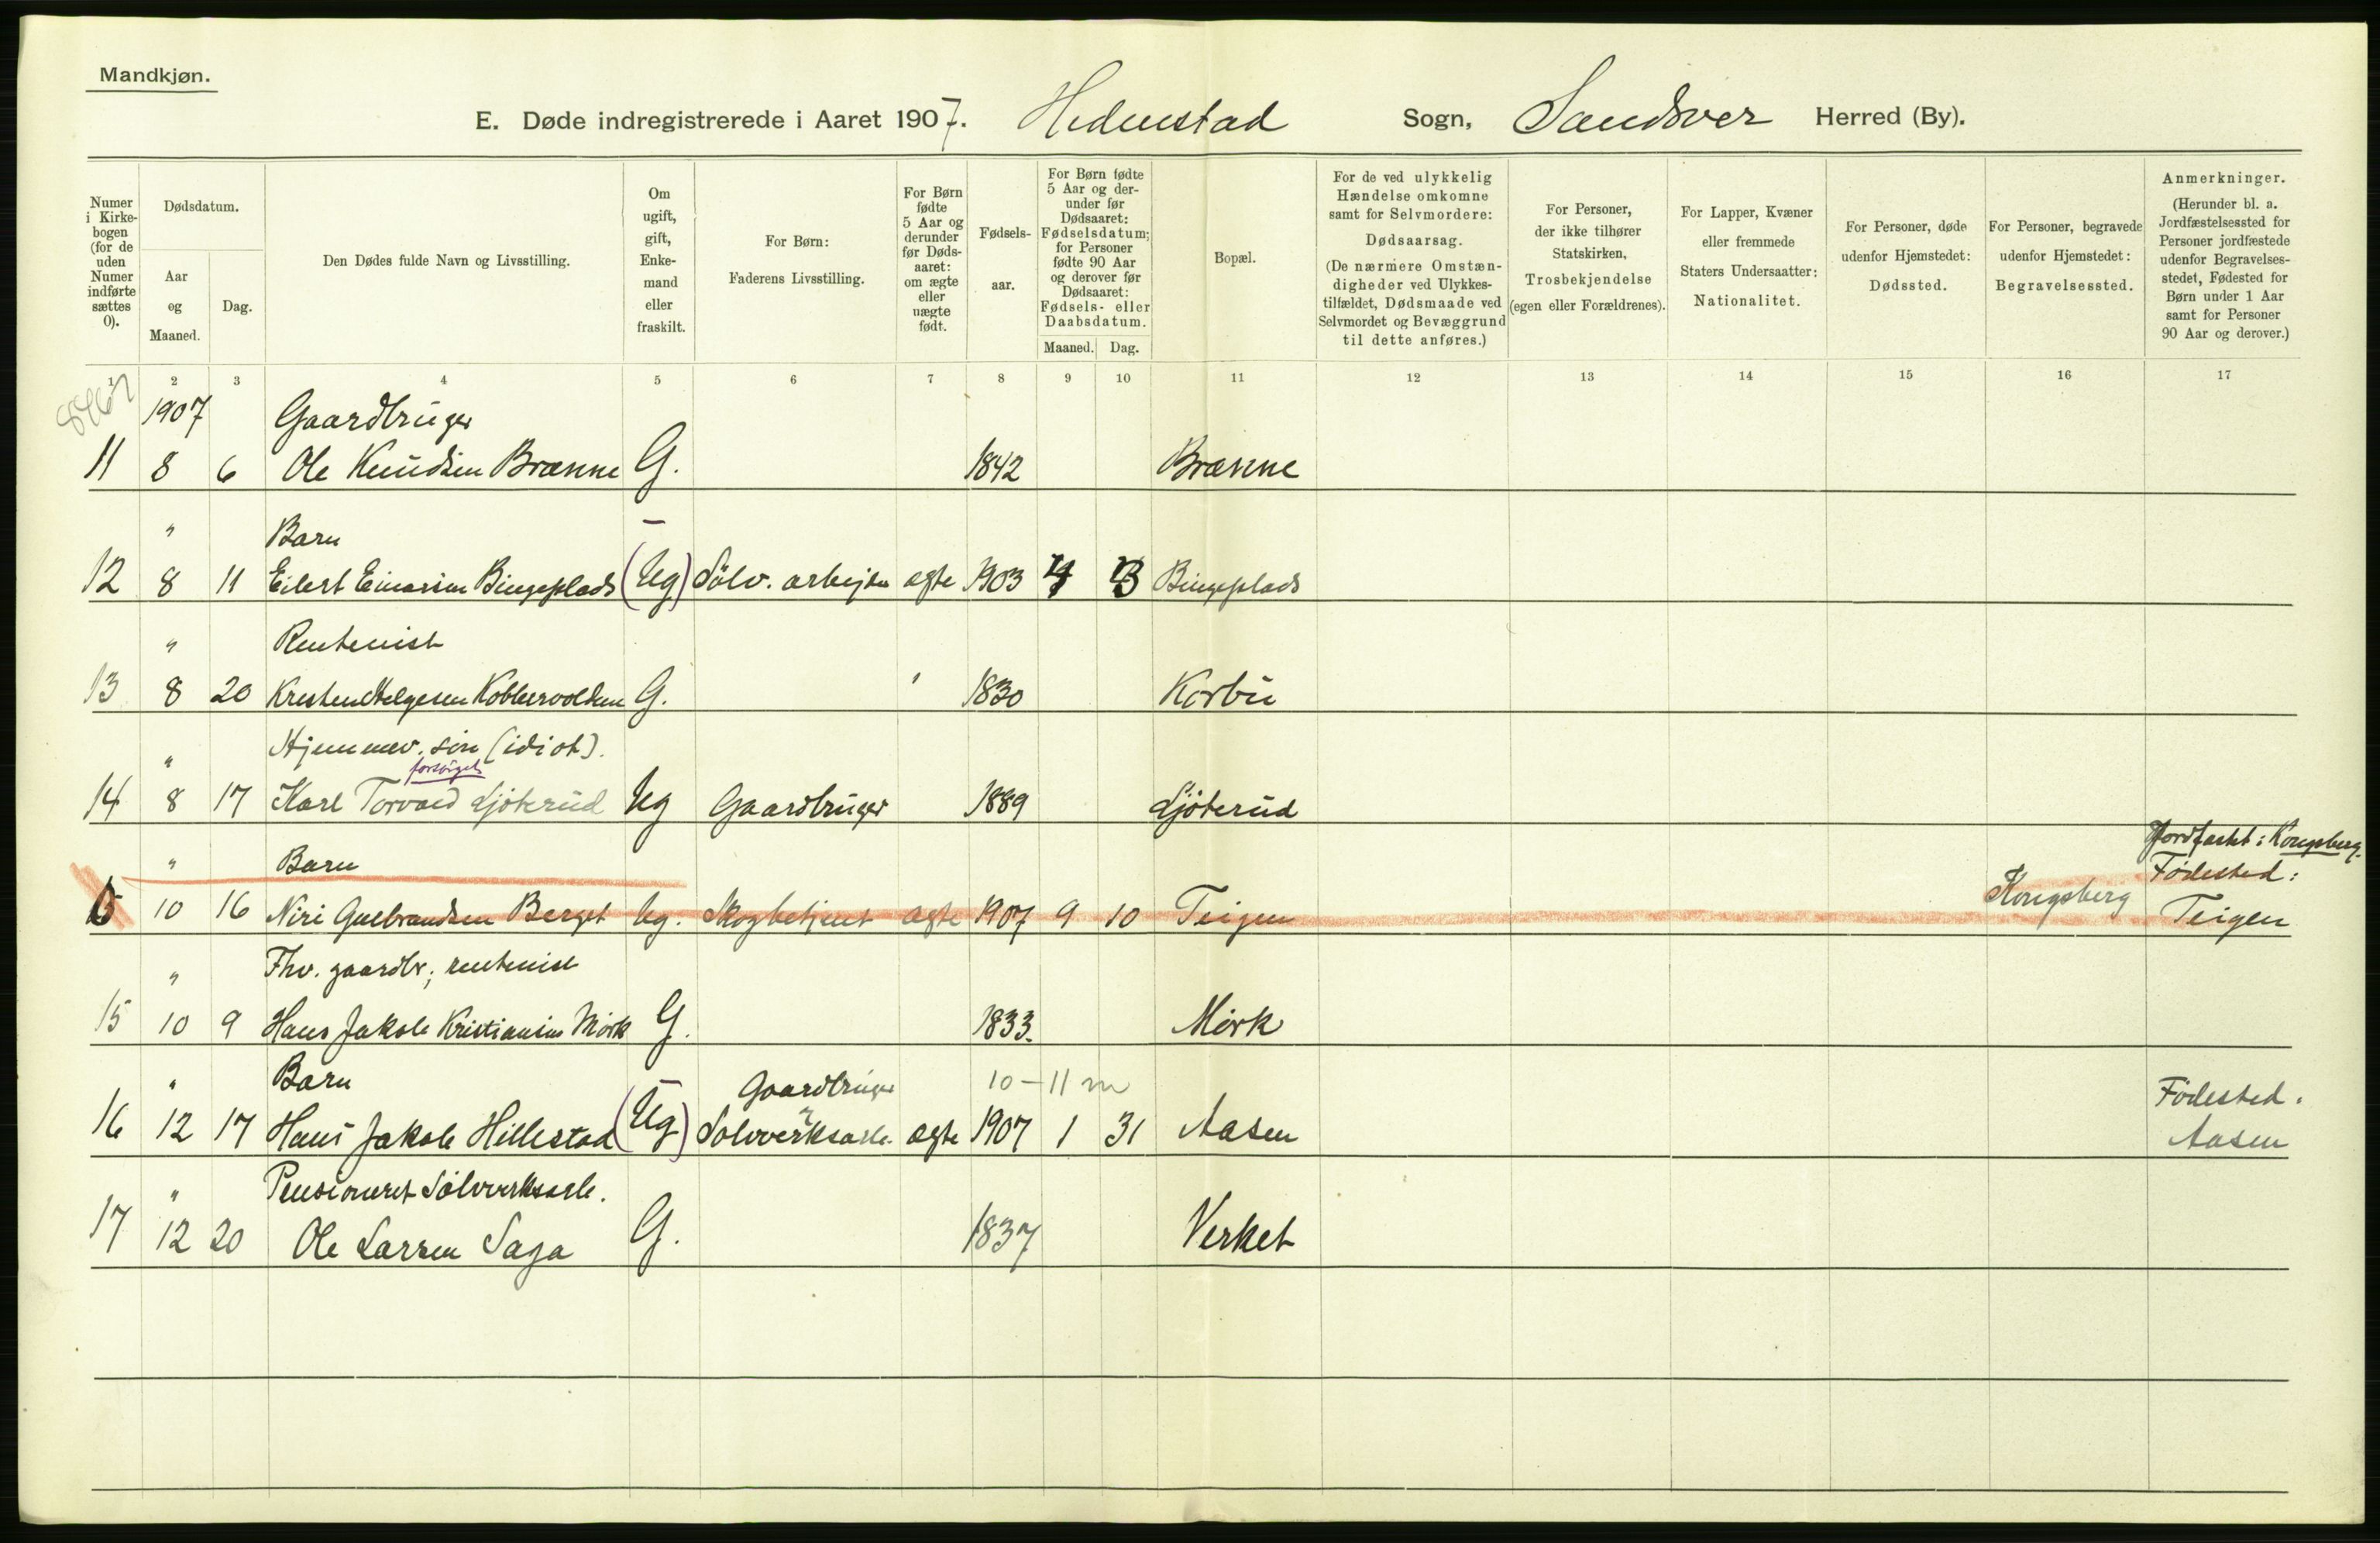 Mandkjøn.
E. Døde indregistrerede i Aaret 1907. Hedenstad Sogn, Sandsver Herred (By).
Numer i Kirke-bogen (for de uden Numer indførte sættes 0).
Dødsdatum.
Aar og Maaned.
Dag.
Den Dødes fulde Navn og Livsstilling.
Om ugift, gift, Enke-mand eller fraskilt.
For Børn: Faderens Livsstilling.
For Børn fødte 5 Aar og derunder før Døds-aaret: om ægte eller uægte født.
Fødsels-aar.
For Børn fødte 5 Aar og der-under før Dødsaaret: Fødselsdatum; for Personer fødte 90 Aar og derover før Dødsaaret: Fødsels- eller Daabsdatum.
Maaned. Dag.
Bopæl.
For de ved ulykkelig Hændelse omkomne samt for Selvmordere: Dødsaarsag. (De nærmere Omstæn-digheder ved Ulykkes-tilfældet, Dødsmaade ved Selvmordet og Bevæggrund til dette anføres.)
For Personer, der ikke tilhører Statskirken, Trosbekjendelse (egen eller Forældrenes).
For Lapper, Kvæner eller fremmede Staters Undersaatter: Nationalitet.
For Personer, døde udenfor Hjemstedet: Dødssted.
For Personer, begravede udenfor Hjemstedet: Begravelsessted.
Anmerkninger. (Herunder bl. a. Jordfæstelsessted for Personer jordfæstede udenfor Begravelses-stedet, Fødested for Børn under 1 Aar samt for Personer 90 Aar og derover.)
1 2 3 4 5 6 7 8 9 10 11 12 13 14 15 16 17
1907 Gaardbruger
11 8 6 Ole Knudsen Brænne G. 1842 Brænne
" Barn
12 8 11 Eilert Einarsen Bingeplads (Ug) Sölv. arbejder ægte 1903 Bingeplads
" Rentenist
13 8 20 Kristen Helgesen Kobbervolden G. 1830 Korbu
" Hjemmev. sön (idiot).
forsörget
14 8 17 Karl Torvald Ljöterud Ug Gaardbruger 1889 Ljöterud
Jordfæstet: Kongsberg.
" Barn Födested:
15 10 16 Niri Gulbrandsen Berget Ug. Skogbetjent ægte 1907 9 10 Teigen Kongsberg Teigen
" Fhv. gaardbr; rentenist
15 10 9 Hans Jakob Kristiansen Mörk G. 1833. Mörk
" Barn Gaardbruger 10-11 m Födested.
16 12 17 Hans Jakob Hillestad (Ug) Sölvverksarb. ægte 1907 1 31 Aasen Aasen
" Pensioneret Sölvverksarb.
17 12 20 Ole Larsen Saga G. 1837 Verket